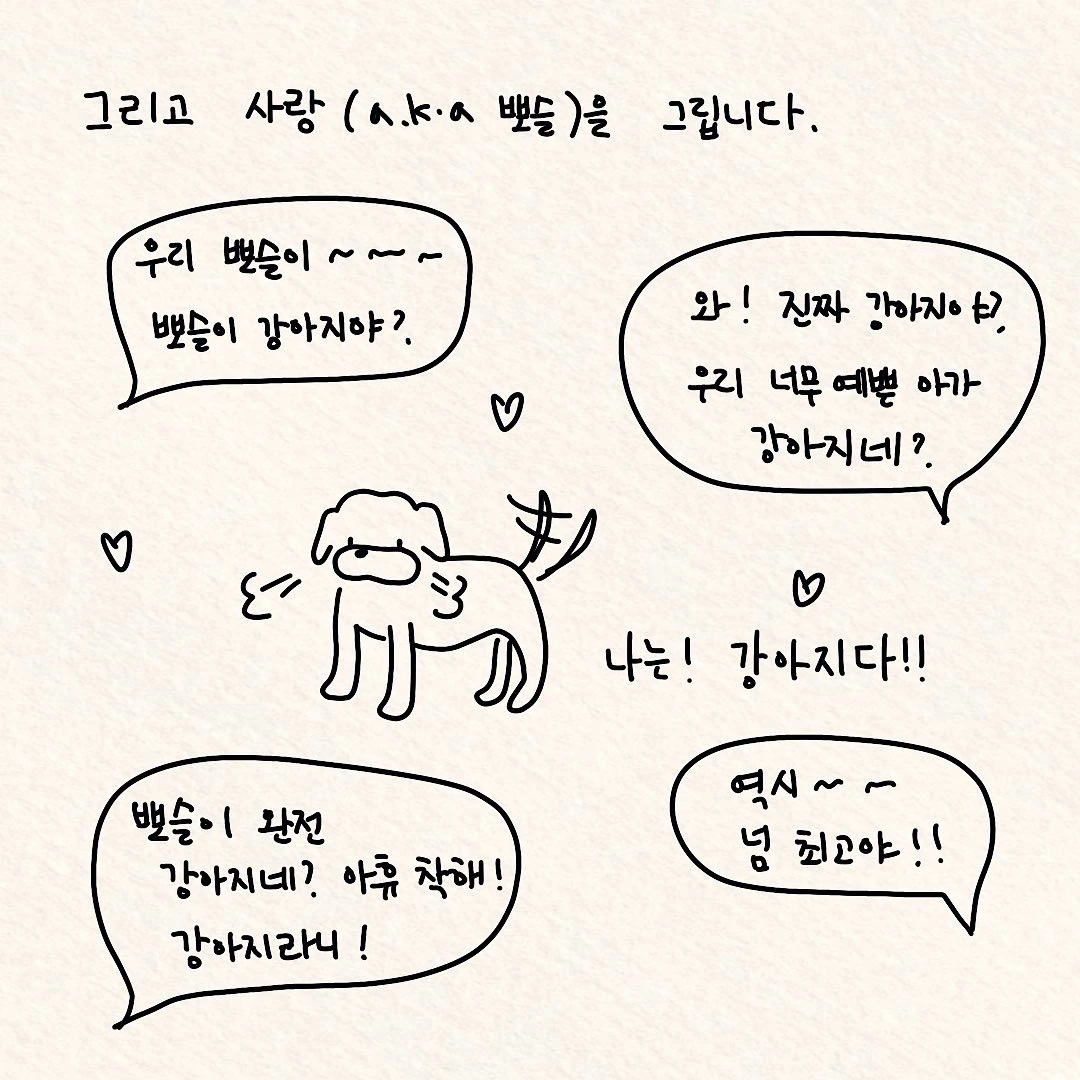 그리고 사랑 (a.k.a 뽀슬)을 그립니다.
우리 뽀슬이 ~ ~ ~
뽀슬이 강아지야?
와! 진짜 강아지야?
우리 너무 예쁜 아가
강아지네?
나는! 강아지다!!
뽀슬이 완전
강아지네? 아휴 착해!
강아지라니!
역시 ~ ~
넘 최고야!!